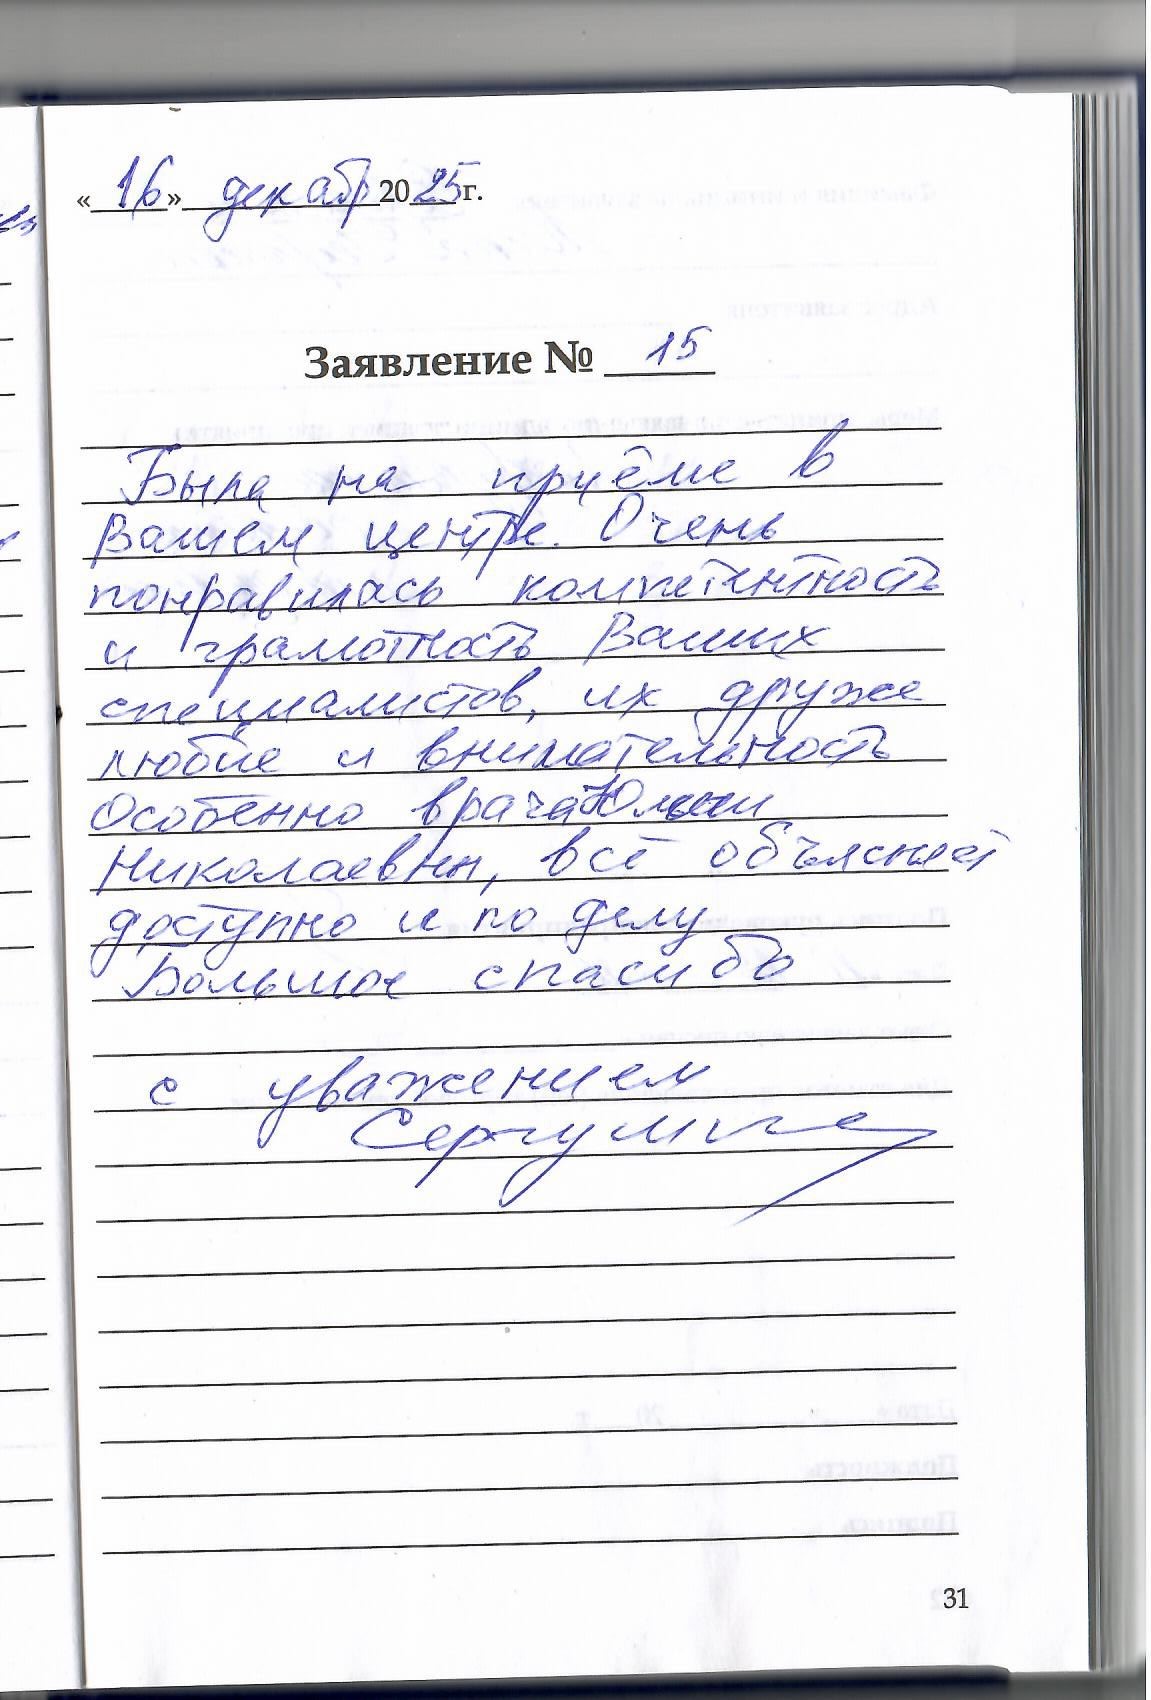 «16» декабр 2025 г.
Заявление № 15
Была на приёме в
Вашем центре. Очень
понравилась компетентность
и грамотность Ваших
специалистов, их друже
любие и внимательность
Особенно врача Юлии
Николаевны, всё объясняет
доступно и по делу
Большое спасибо
с уважением
31